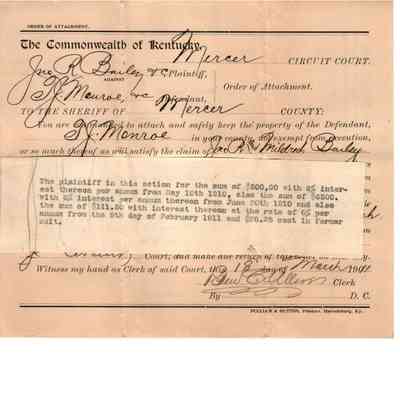 ORDER OF ATTACHMENT.
The Commonwealth of Kentucky, Mercer CIRCUIT COURT.
Jno R. Bailey &c Plaintiff,
AGAINST Order of Attachment.
T J Monroe, &c Defendant,
TO THE SHERIFF OF Mercer COUNTY:
You are commanded to attach and safely keep the property of the Defendant,
T J Monroe
in your county, not exempt from execution,
or so much thereof as will satisfy the claim of Jno. R & Mildred Bailey
The plaintiff in this action for the sum of $500,00 with 6% inter-
est thereon per annum from May 10th 1910, also the sum of $6500.
with 6% interest per annum thereon from June 20th 1910 and also
the sum of $111.50 with interest thereon at the rate of 6% per
annum from the 9th day of February 1911 and $26.25 cost in former
suit.
Court, and make due return of
Witness my hand as Clerk of said Court, this 18 day of March
Clerk
By D. C.
PULLIAM & SUTTON, Printers, Harrodsburg, Ky.